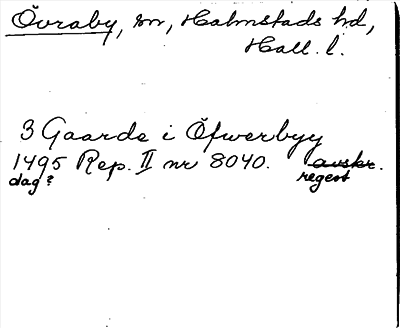 Övraby, sn, Halmstads hd,
Hall. l.
3 Gaarde i Öfwerbyy
1495 Rep. II nr 8040. avskr.
dag? regest